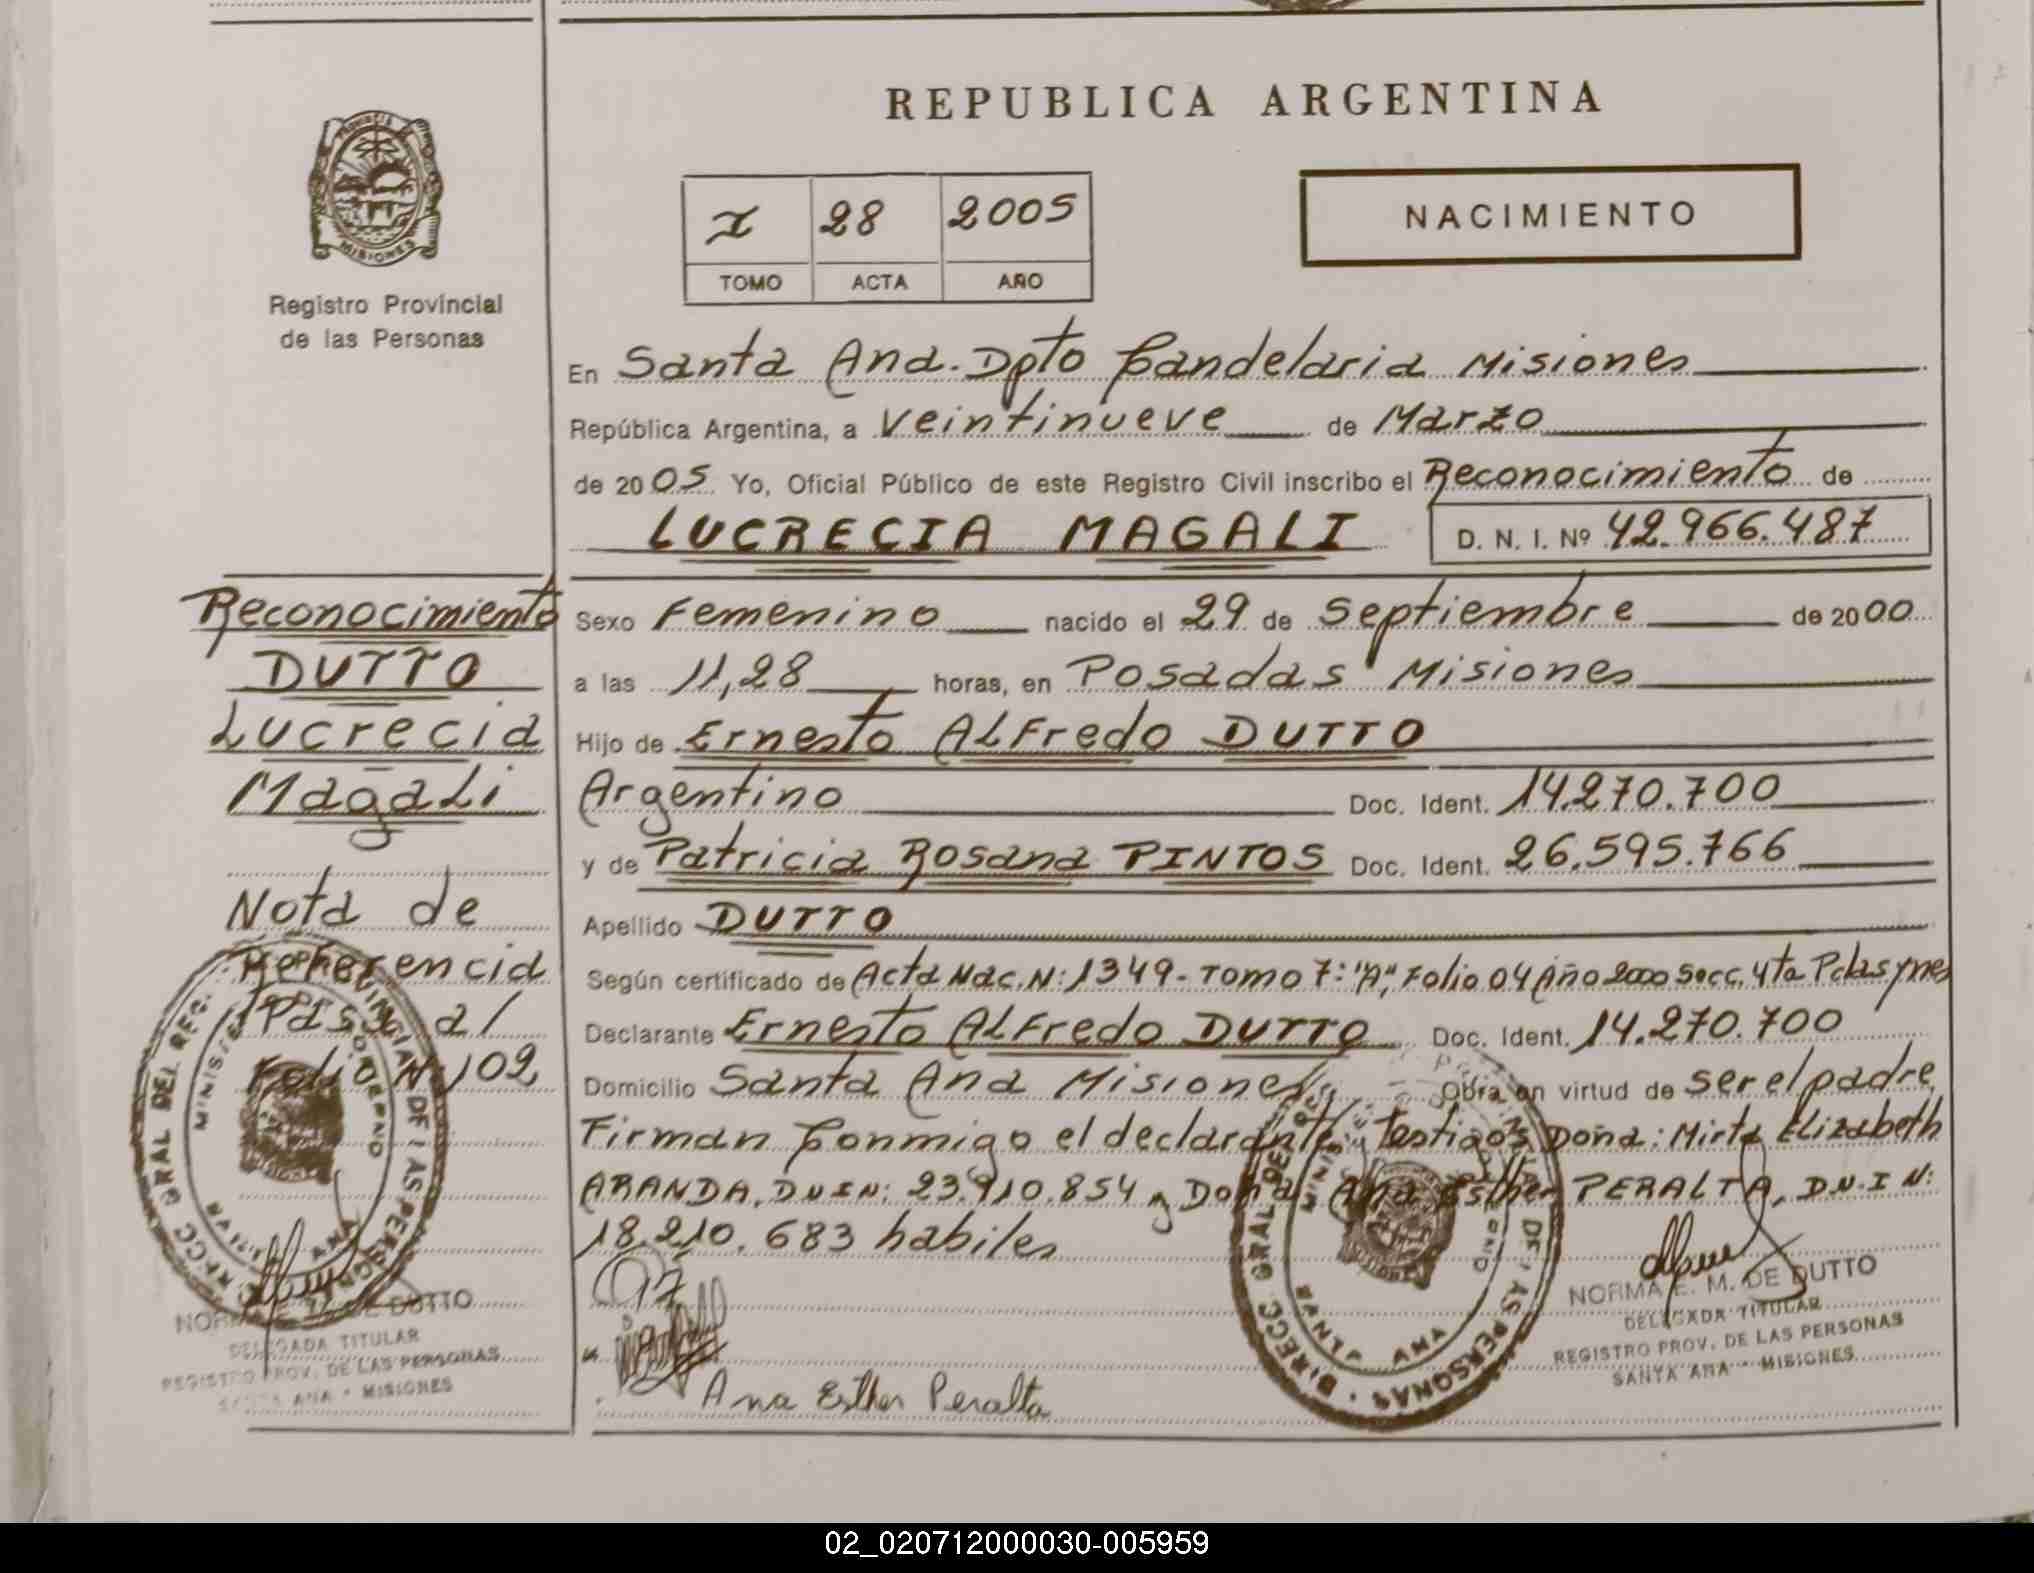 REPUBLICA ARGENTINA
PROVINCIA DE
MISIONES
Registro Provincial
de las Personas
I 28 2005
TOMO ACTA AÑO
NACIMIENTO
En Santa Ana. Dpto Candelaria Misiones
República Argentina, a veintinueve de Marzo
de 2005 Yo, Oficial Público de este Registro Civil inscribo el Reconocimiento de
LUCRECIA MAGALI D. N. I. Nº 42.966.487
Sexo Femenino nacido el 29 de Septiembre de 2000
a las 11,28 horas, en Posadas Misiones
Hijo de Ernesto ALFredo DUTTO
Argentino Doc. Ident. 14.270.700
y de Patricia Rosana PINTOS Doc. Ident. 26.595.766
Apellido DUTTO
Según certificado de Acta Nac. N: 1349- Tomo 7: "A", Folio 04 Año 2000 Secc. 4ta Pdas ynes
Declarante Ernesto ALFredo DUTTO Doc. Ident. 14.270.700
Domicilio Santa Ana Misiones Obra en virtud de ser el padre
Firman Conmigo el declarante y Testigos Doña: Mirta Elizabeth
ARANDA, DNIN: 23.910.854 y Doña Ana Esther PERALTA, D.N.I N:
18.210.683 habiles
Ana Esther Peralta
Reconocimiento
DUTTO
Lucrecia
Magali
Nota de
Referencia
Pasa al
Folio N 102
DIRECC GRAL DEL REG. PROVINCIAL DE LAS PERSONAS
SANTA ANA
NORMA E. M. DE DUTTO
DELEGADA TITULAR
REGISTRO PROV. DE LAS PERSONAS
SANTA ANA - MISIONES
DIRECC GRAL DEL REG. PROVINCIAL DE LAS PERSONAS
SANTA ANA
NORMA E. M. DE DUTTO
DELEGADA TITULAR
REGISTRO PROV. DE LAS PERSONAS
SANTA ANA - MISIONES
02_020712000030-005959